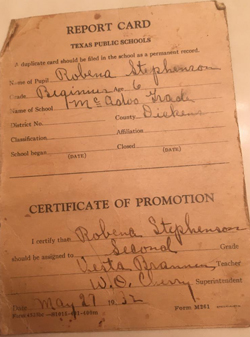 REPORT CARD
TEXAS PUBLIC SCHOOLS
A duplicate card should be filed in the school as a permanent record.
Name of Pupil Robena Stephenson
Grade Beginner Age 6
Name of School McAdoo Grade
District No. County Dickens
Classification Affiliation
School began Closed
(DATE) (DATE)
CERTIFICATE OF PROMOTION
I certify that Robena Stephenson
should be assigned to Second Grade
Vesta Teacher
W.O. Cherry Superintendent
Date May 27 1932
Form M261